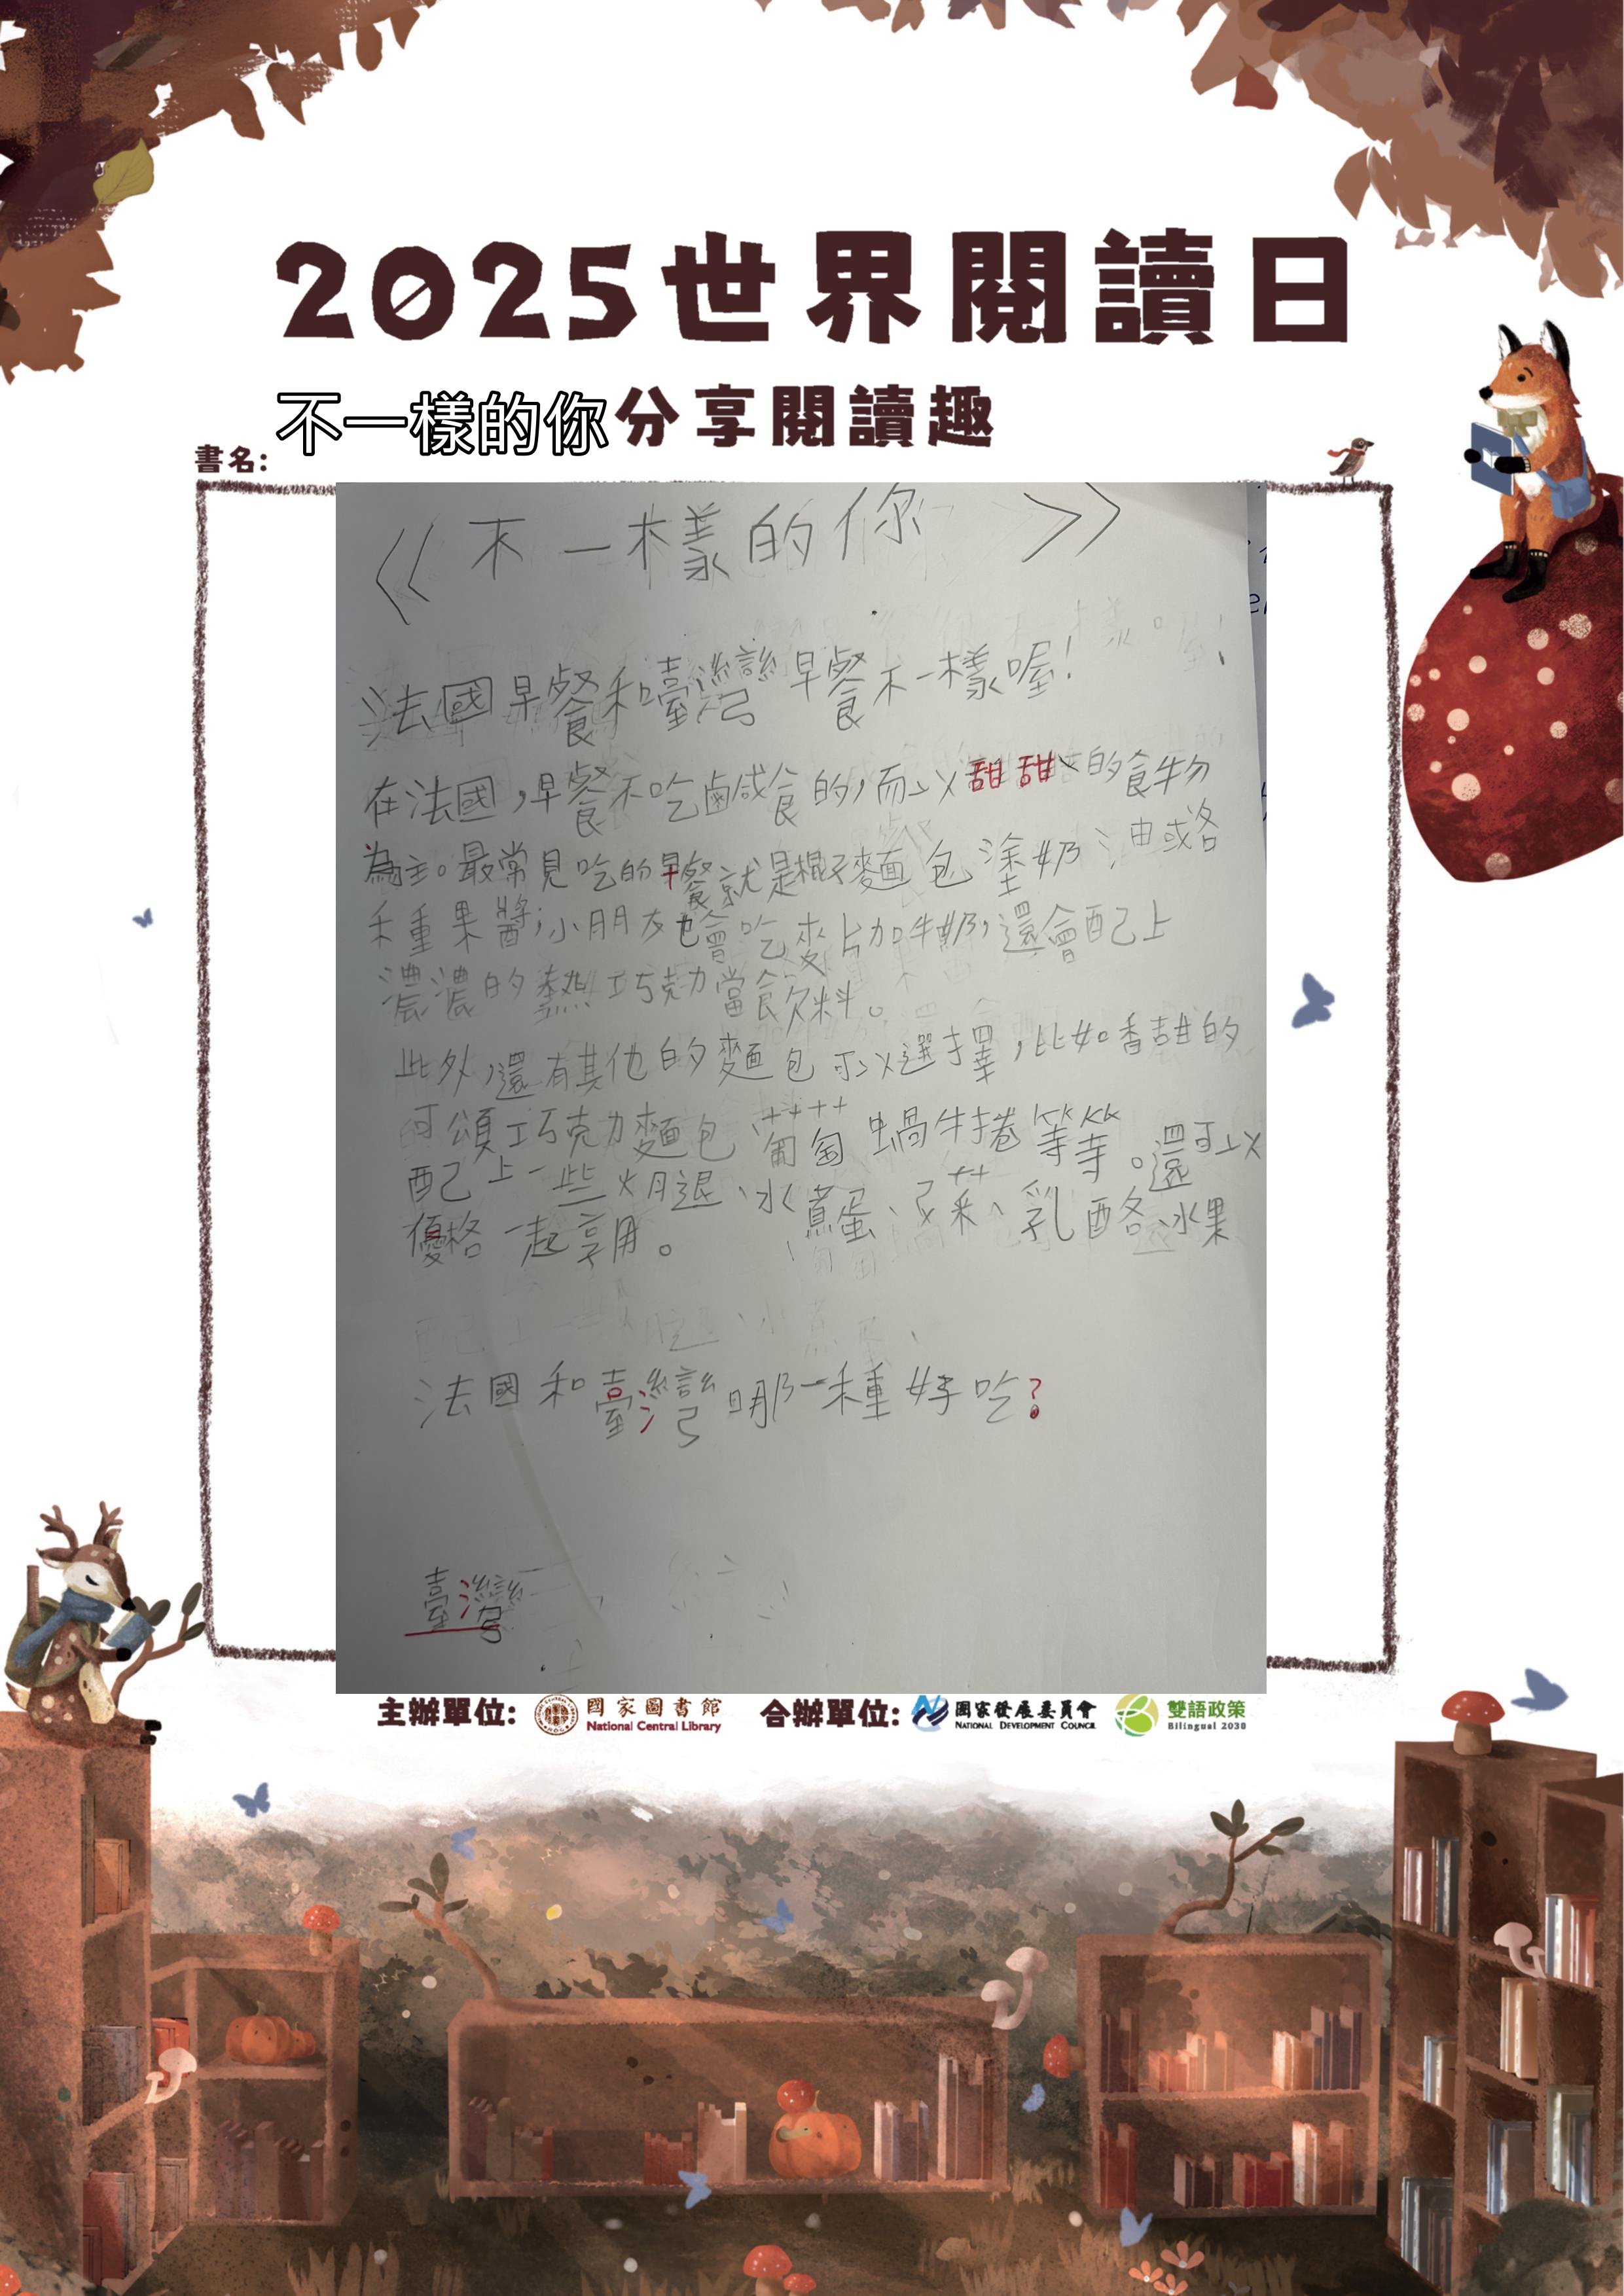 2025世界閱讀日
不一樣的你分享閱讀趣
書名:
《不一樣的你》
法國早餐和臺灣早餐不一樣喔!
在法國,早餐不吃鹹食的,而以甜甜的食物
為主。最常見吃的早餐就是棍子麵包塗奶油或各
種果醬;小朋友也會吃麥片加牛奶,還會配上
濃濃的熱巧克力當飲料。
此外,還有其他的麵包可以選擇,比如香甜的
可頌巧克力麵包 葡萄蝸牛捲等等。還可以
配上一些火腿、水煮蛋、、乳酪、水果
優格一起享用。
法國和臺灣哪一種好吃?
臺灣
主辦單位: 國家圖書館 National Central Library 合辦單位: 國家發展委員會 NATIONAL DEVELOPMENT COUNCIL 雙語政策 Bilingual 2030